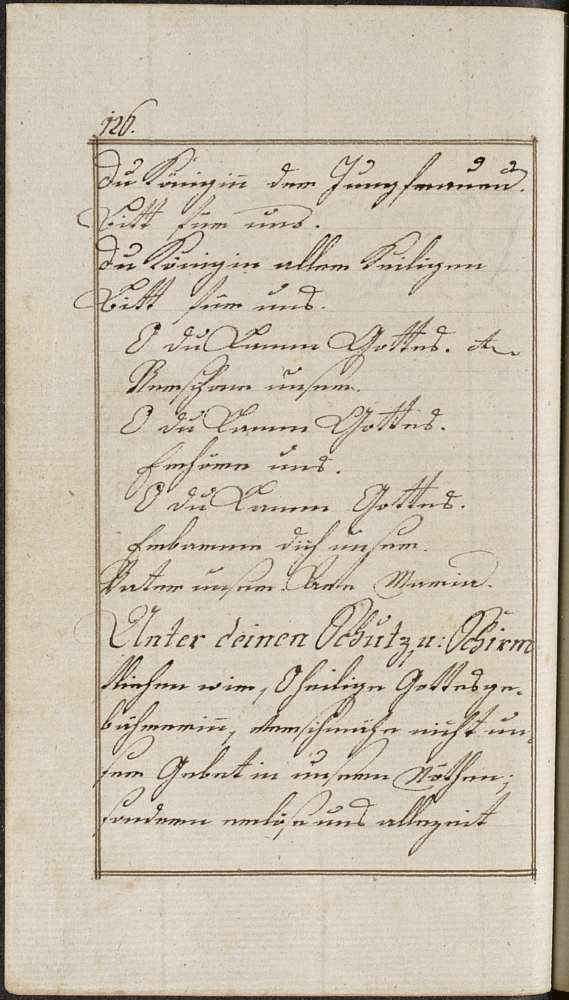 126.
Du Königin der Jungfrauen.
Bitt für uns.
Du Königin aller Heiligen
Bitt für uns.
O du Lamm Gottes.
Verschone unser.
O du Lamm Gottes.
Erhöre uns.
O du Lamm Gottes.
Erbarme dich unser.
Vater unser. Ave Maria.
Unter deinen Schutz, u: Schirm
fliehen wir, O heilige Gottesge-
bährerinn, verschmähe nicht un-
ser Gebet in unsern Nöthen;
sondern erlöse uns allezeit